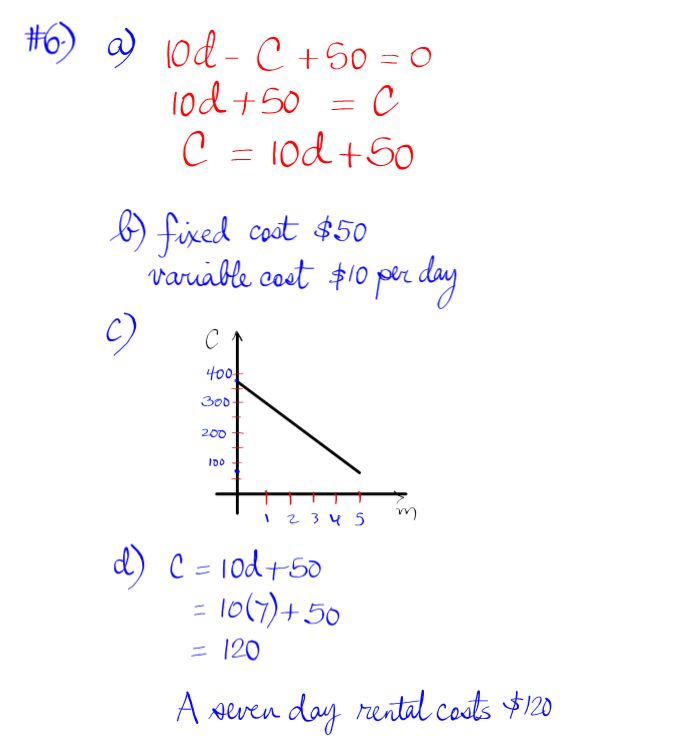 #6.) a) 10d - C + 50 = 0
10d + 50 = C
C = 10d + 50
b) fixed cost $50
variable cost $10 per day
c)
C
400
300
200
100
1 2 3 4 5 m
d) C = 10d + 50
= 10(7) + 50
= 120
A seven day rental costs $120